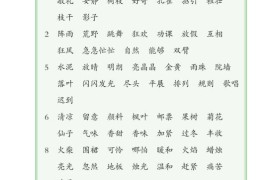 枝干 影子
2 阵雨 荒野 跳舞 狂欢 功课 放假 互相
狂风 急急忙忙 自然 能够 双臂
5 水泥 放晴 明朗 亮晶晶 金黄 雨珠 院墙
落叶 闪闪发光 尽头 平展 排列 规则 歌唱
迟到
6 清凉 留意 颜料 枫叶 邮票 果树 菊花
仙子 气味 香甜 香味 加紧 过冬 丰收
8 火柴 围裙 可怜 哪怕 脚掌 暖和 火焰 蜡烛
亮光 忽然 地板 烛光 温和 赶紧 痛苦